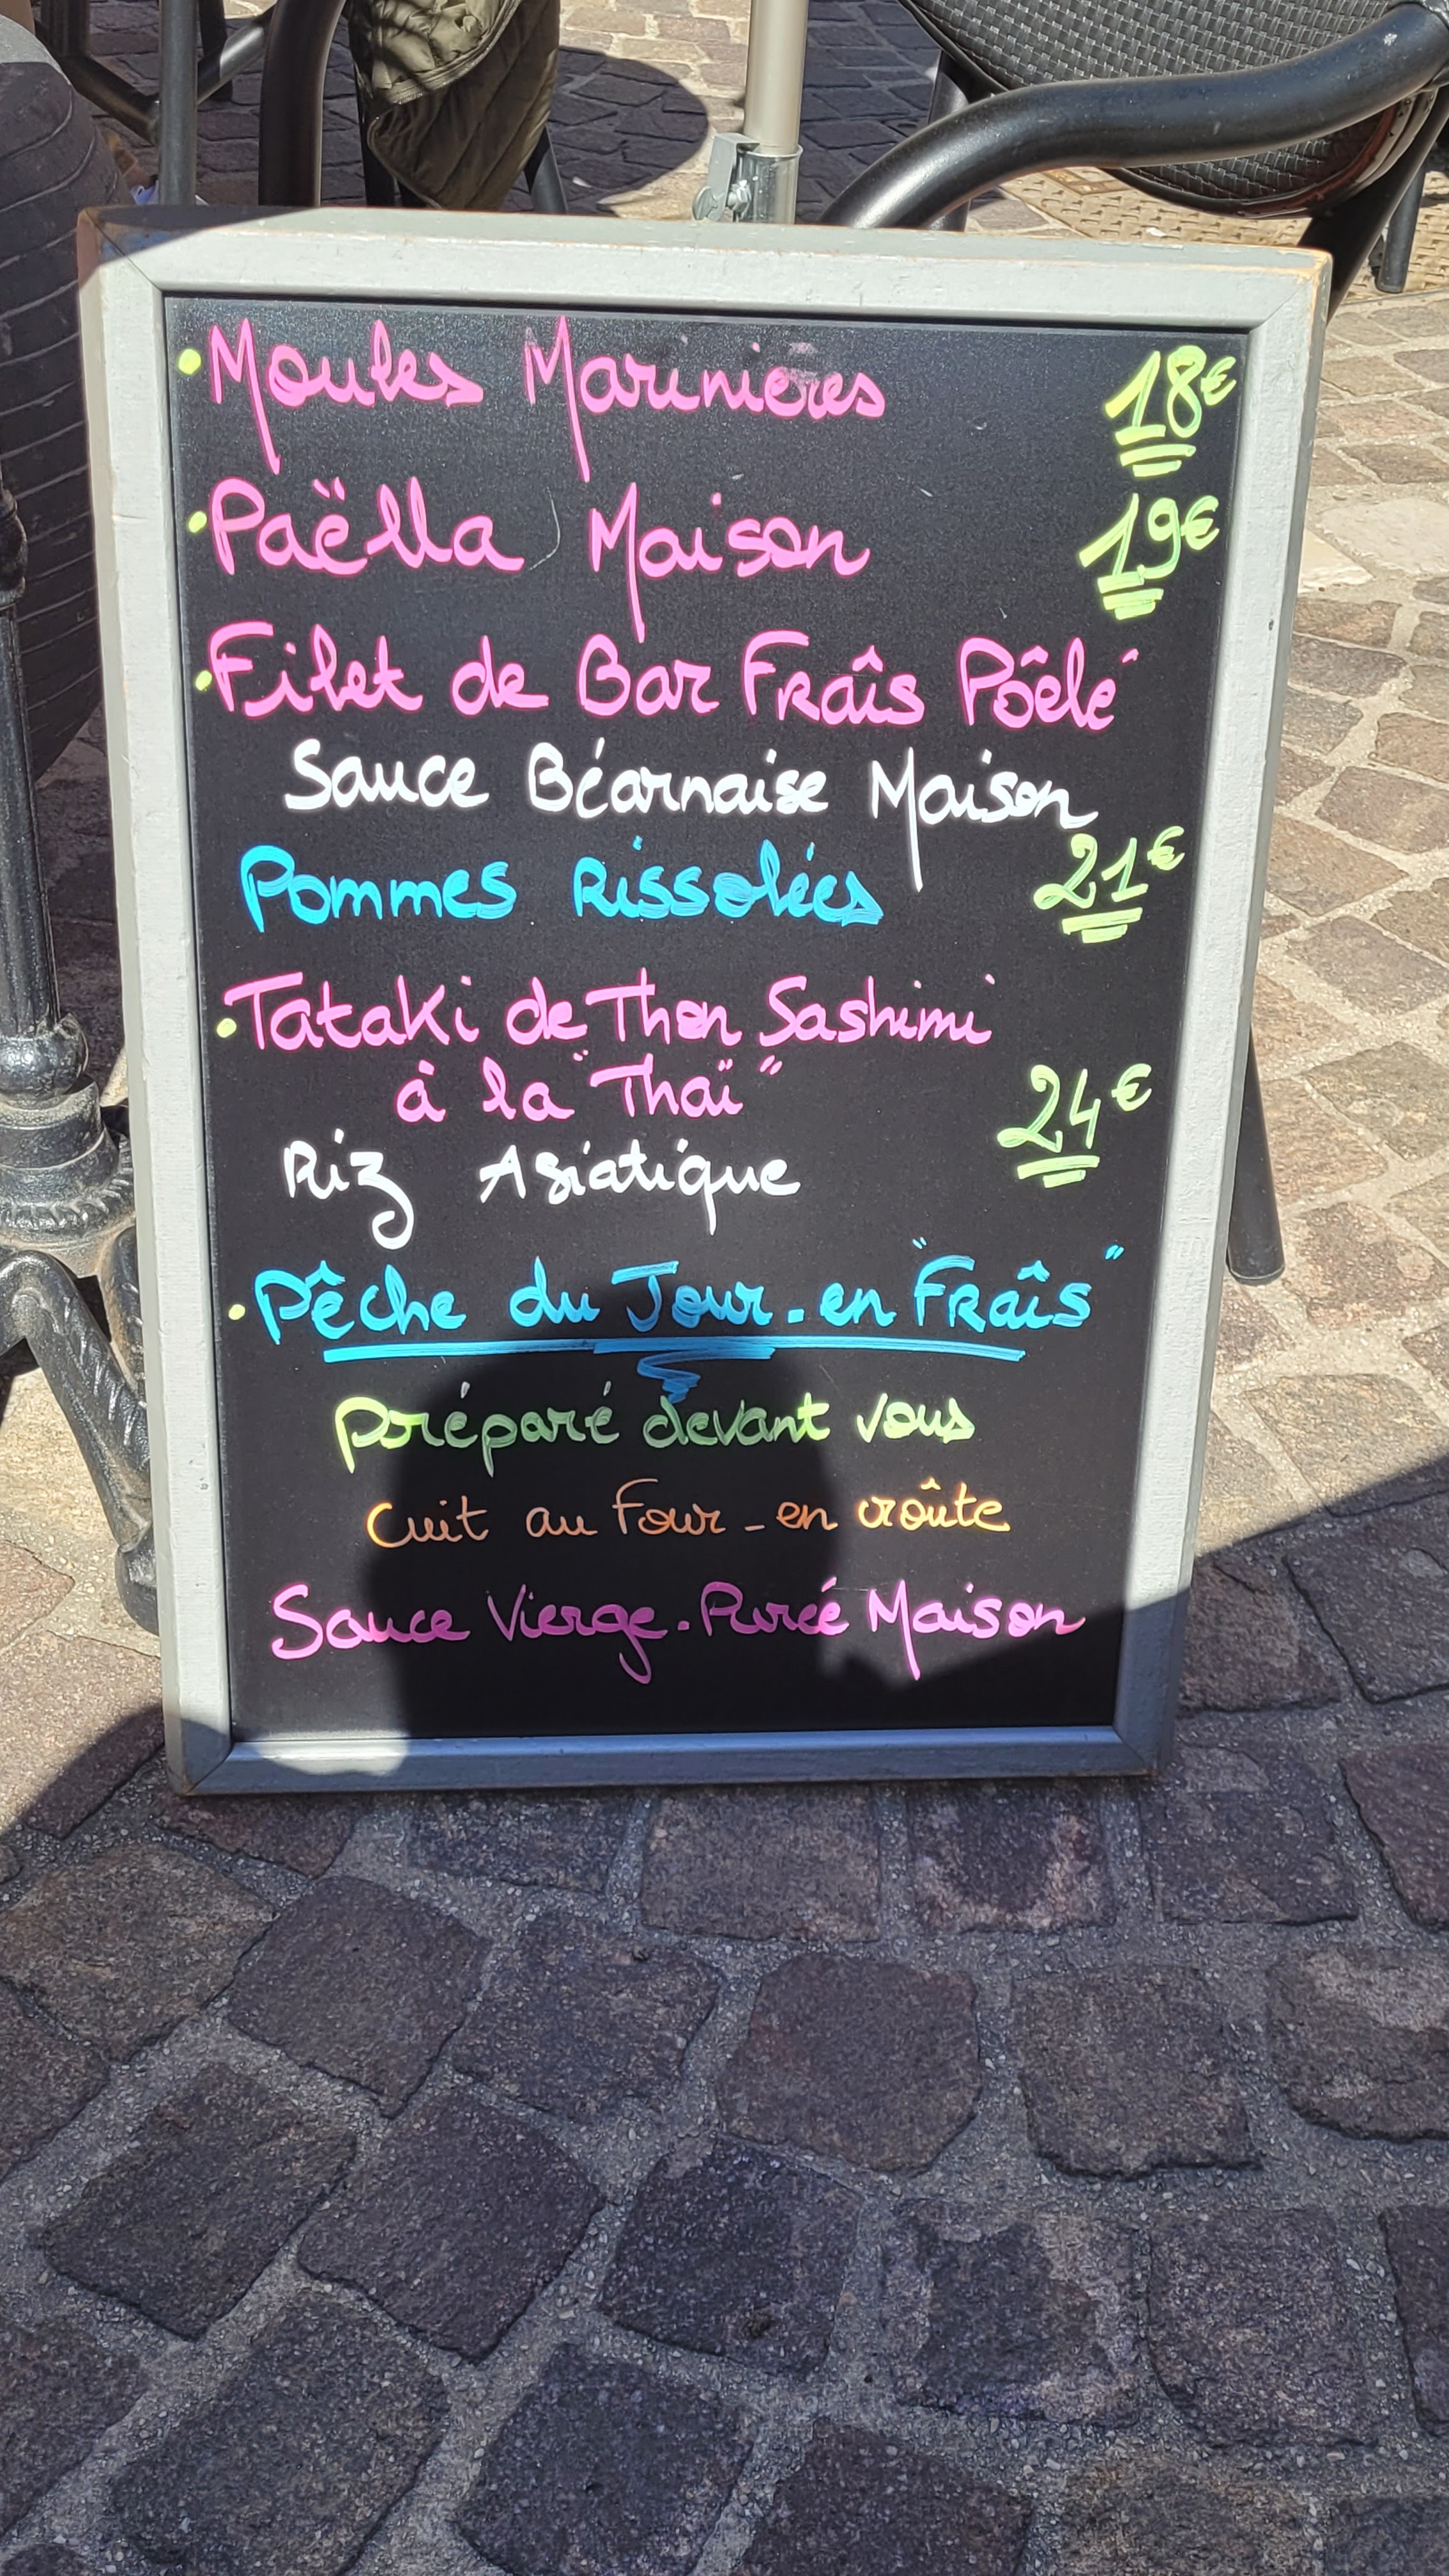 • Moules Marinières 18€
• Paëlla Maison 19€
• Filet de Bar Fraîs Pôêlé
Sauce Béarnaise Maison
Pommes Rissolées 21€
• Tataki de Thon Sashimi
à la "Thaï" 24€
Riz Asiatique
• Pêche du Jour - en "Fraîs"
préparé devant vous
Cuit au Four - en croûte
Sauce Vierge. Purée Maison